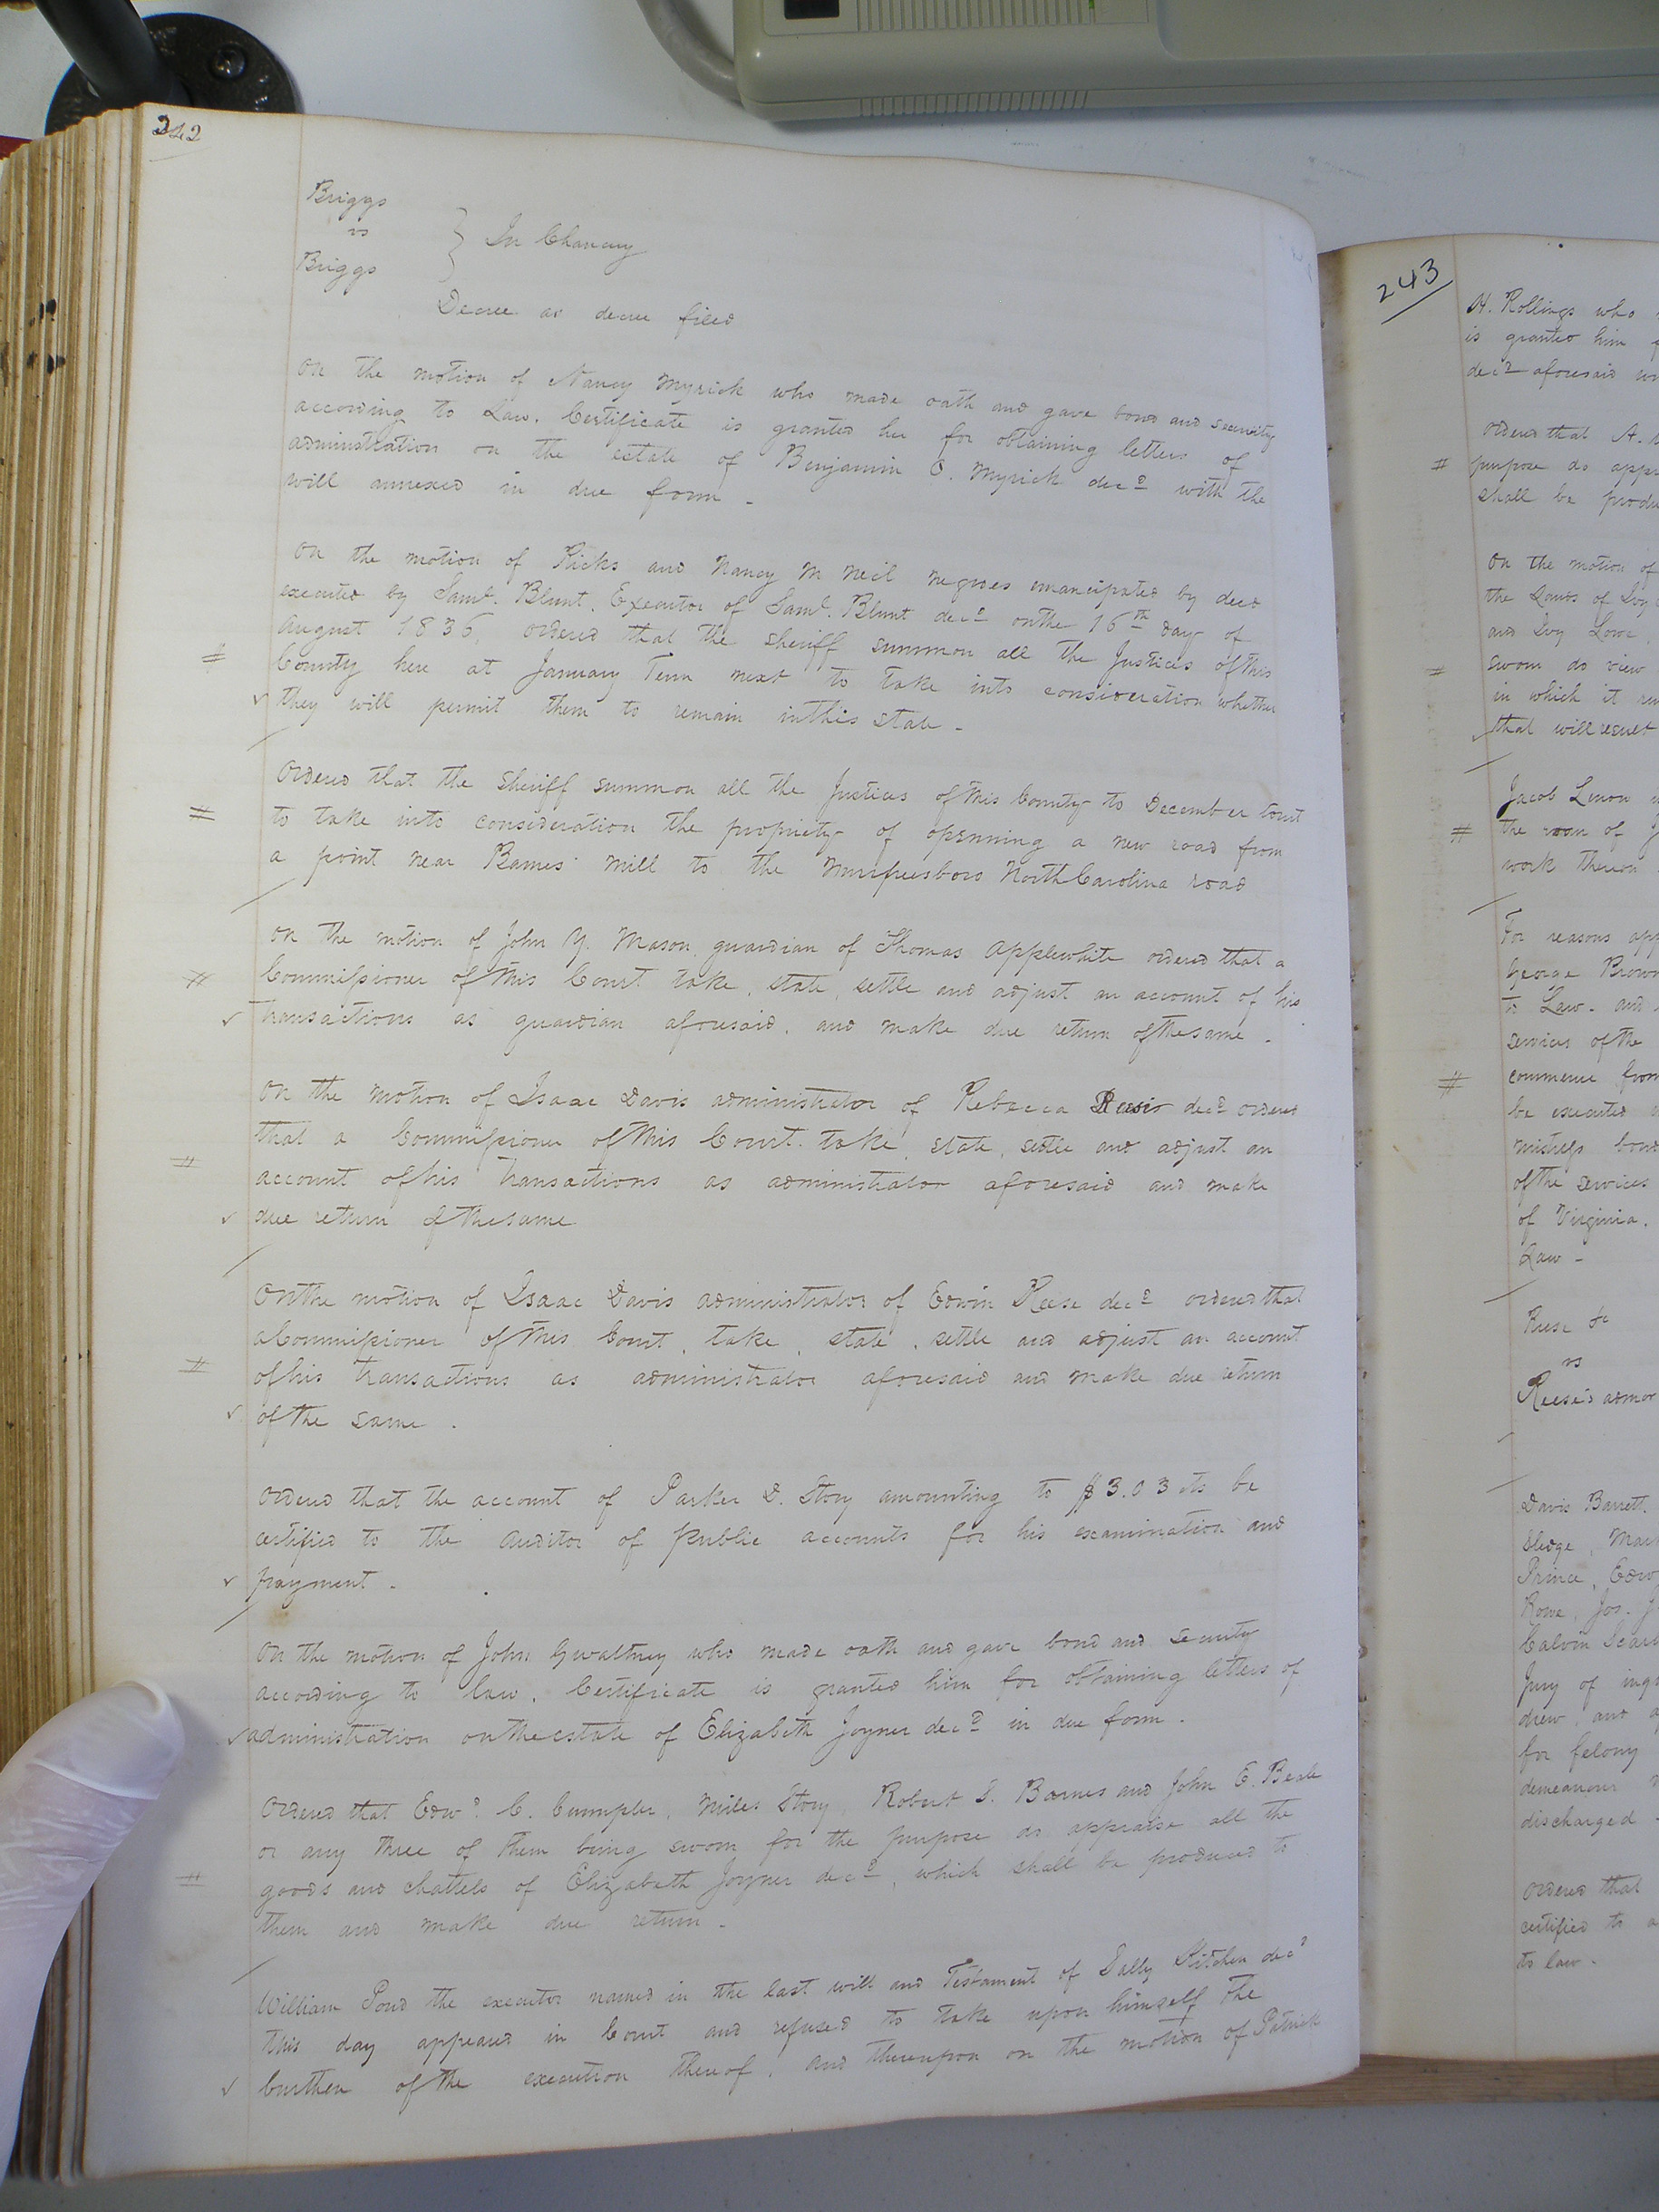 242
Briggs
vs } In Chancery
Briggs
Decree as decree filed
On the motion of Nancy Myrick who made oath and gave bond and security
according to Law. Certificate is granted her for obtaining letters of
administration on the estate of Benjamin O. Myrick decd with the
will annexed in due form -
On the motion of Ricks and Nancy M Neil negroes emancipated by deed
executed by Saml. Blunt, Executor of Saml. Blunt decd on the 16th day of
August 1836, ordered that the sheriff summon all the Justices of this
# County here at January Term next to take into consideration whether
✓ they will permit them to remain in this state -
Ordered that the sheriff summon all the Justices of this County to December Court
# to take into consideration the propriety of openning a new road from
a point near Barnes' mill to the Murfreesboro North Carolina road
On the motion of John Y. Mason, guardian of Thomas Applewhite ordered that a
# Commissioner of this Court take, state, settle and adjust an account of his
✓ transactions as guardian aforesaid, and make due return of the same -
On the motion of Isaac Davis administrator of Rebecca decd ordered
that a Commissioner of this Court take, state, settle and adjust an
# account of his transactions as administrator aforesaid and make
✓ due return of the same
On the motion of Isaac Davis administrator of Edwin Reese decd ordered that
a Commissioner of this Court, take, state, settle and adjust an account
# of his transactions as administrator aforesaid and make due return
✓ of the same.
Ordered that the account of Parker D. Story amounting to $3.03 cts be
certified to the Auditor of public accounts for his examination and
✓ payment -
On the motion of John Gwaltney who made oath and gave bond and security
according to law, Certificate is granted him for obtaining letters of
✓ administration on the estate of Elizabeth Joyner decd in due form.
Ordered that Edwd. C. Crumpler, Miles Story, Robert S. Barnes and John E. Beale
or any three of them being sworn for the purpose do appraise all the
# goods and chattels of Elizabeth Joyner decd, which shall be produced to
them and make due return -
William Pond the executor named in the last will and Testament of Sally Kitchen decd
this day appeared in Court and refused to take upon himself the
✓ burthen of the execution thereof, and thereupon on the motion of Patrick
243
H. Rollings who
is granted him
decd aforesaid
Ordered that A.
# purpose do
shall be
On the motion of
the Lands of
and Ivy
# sworn do view
in which it
✓ that will result
Jacob
# the room of
work thereon
For reasons
George Brown
to Law. and
services of the
# commence from
be executed
bond
of the services
of Virginia.
Law -
Reese &c
vs
Reese's admor
Davis Barrett.
Sledge,
Prince, Edw
Rowe, Jos.
Calvin
Jury of
drew, and
for felony
demeanour
discharged
Ordered that
certified to
to law -